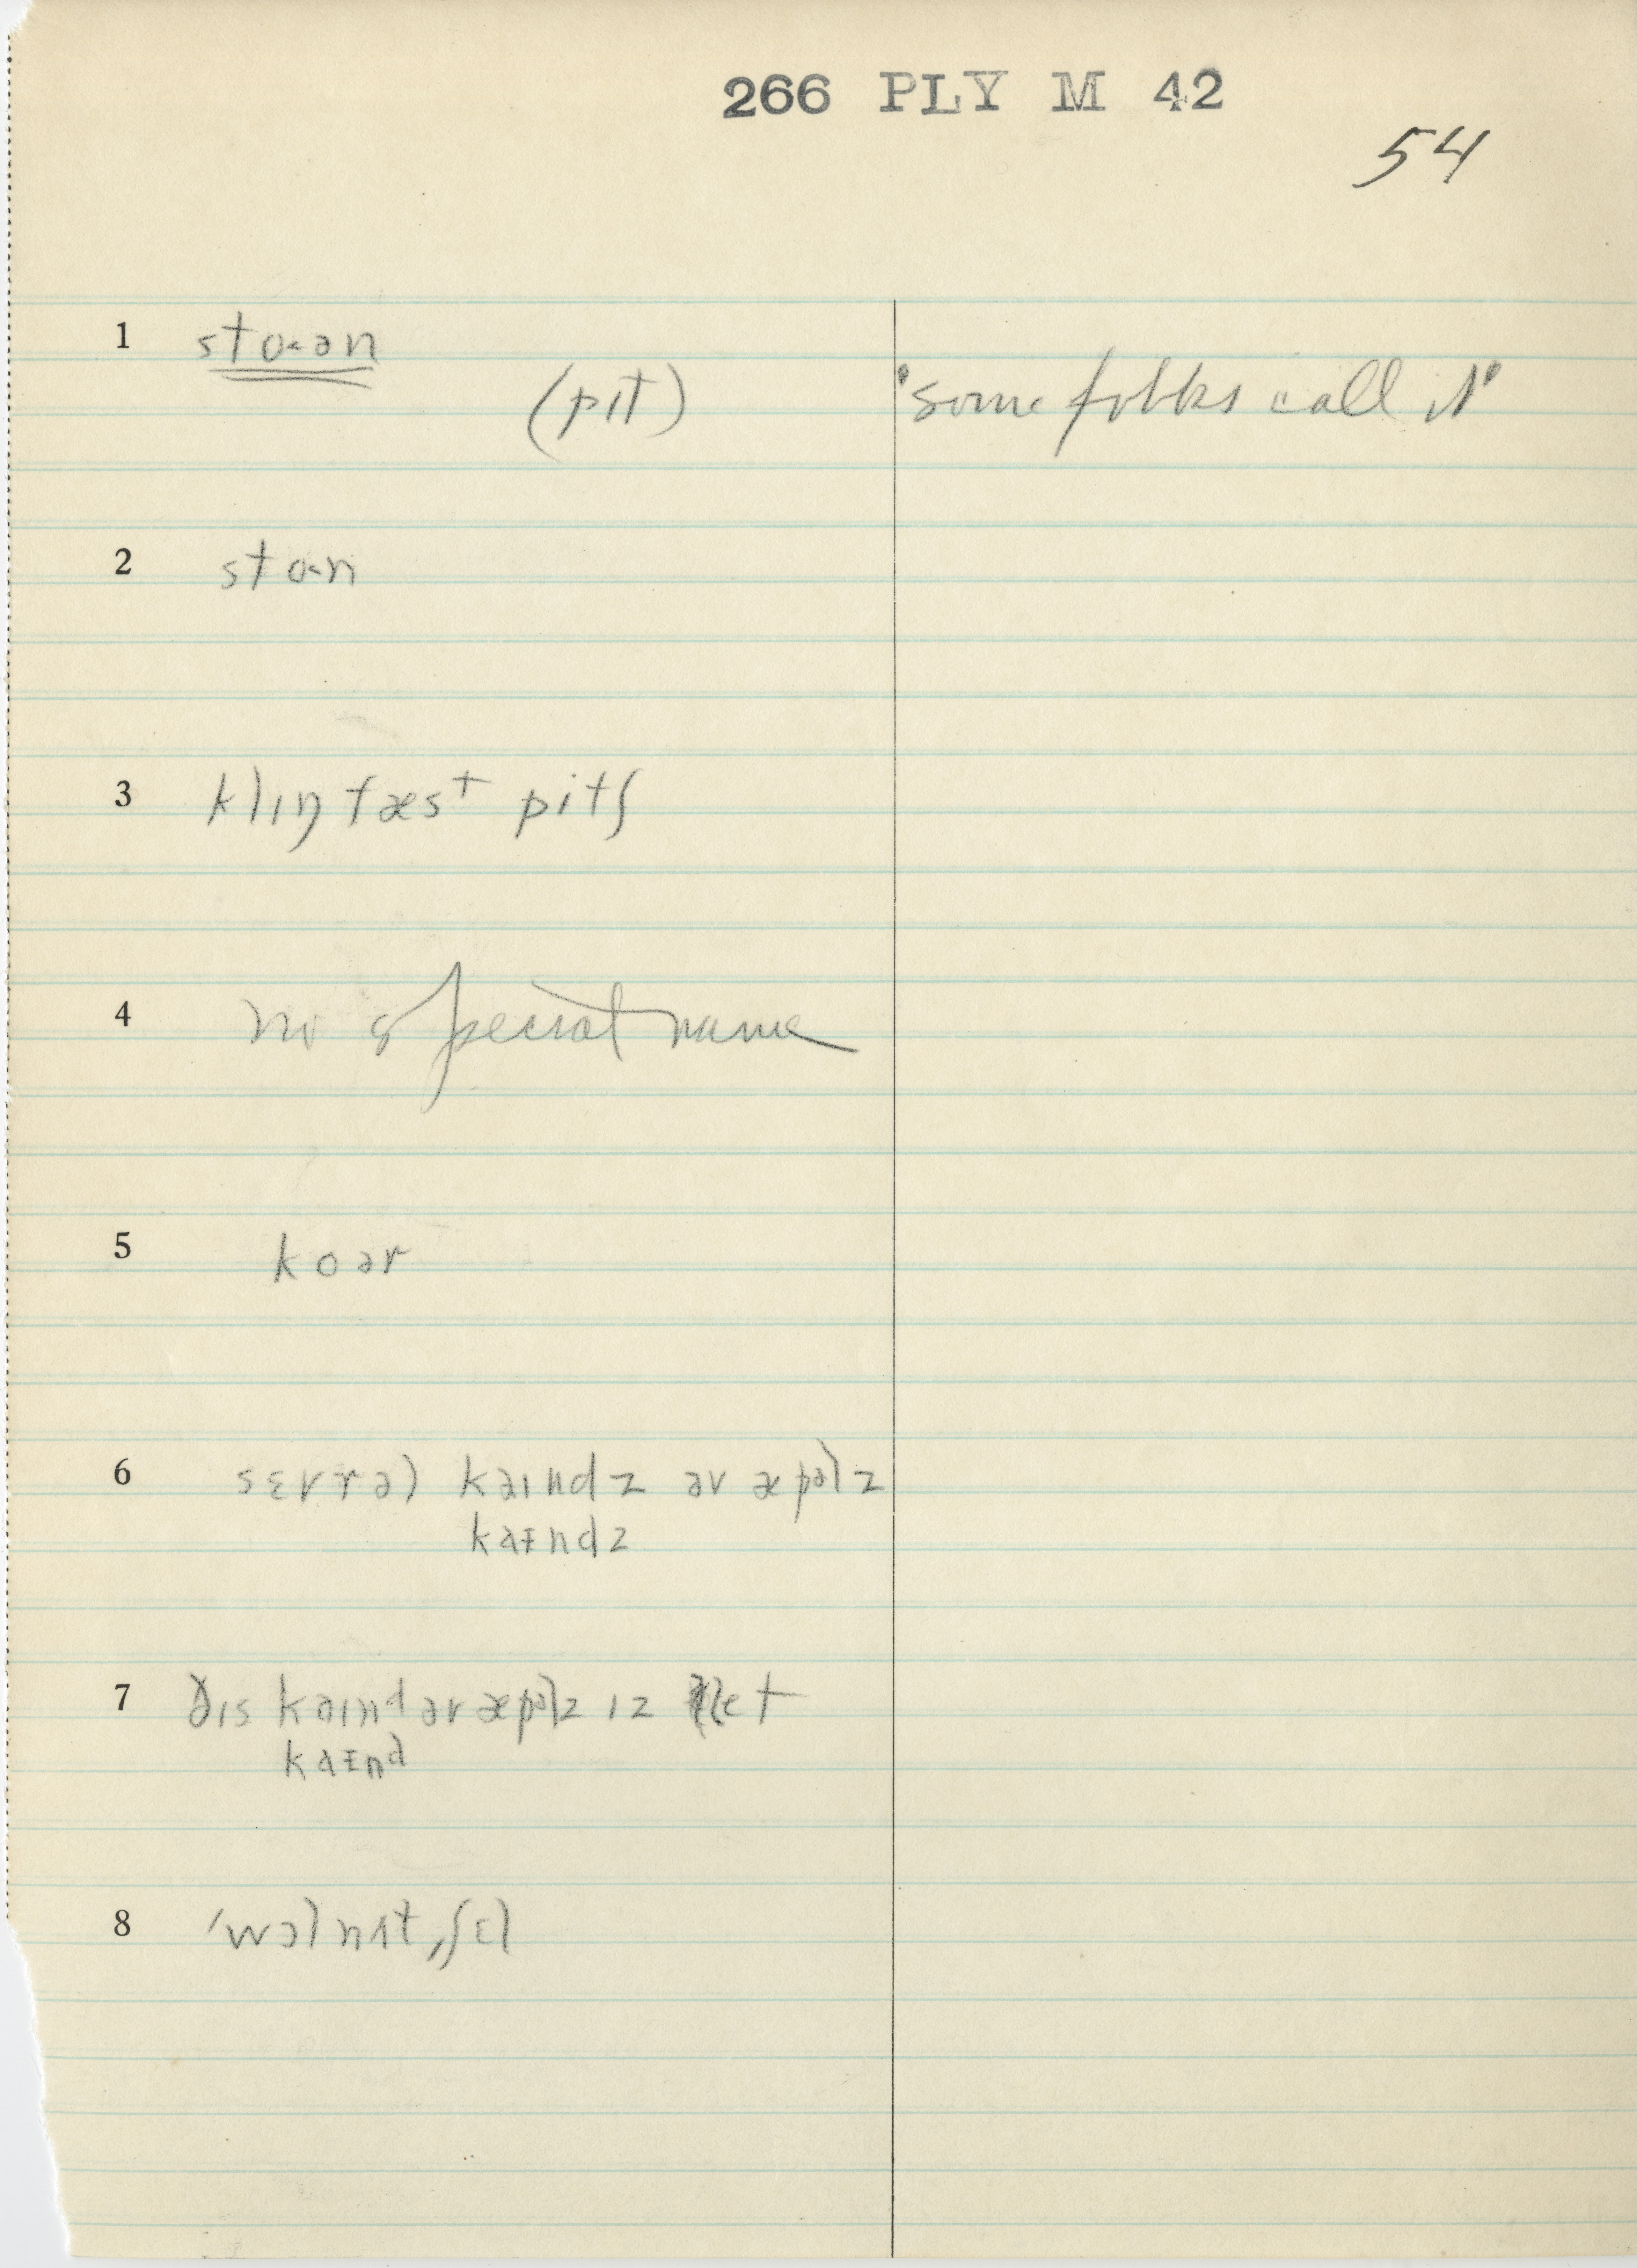 266 PLY M 42
54
1 sto‧ən
(pɪt) "some folks call it"
2 sto‧n
3 klɪŋ fæst pitʃ
4 no special name
5 koər
6 sɛvrəl kaɪndz əv æpəlz
kaᵻndz
7 ðɪs kaɪnd əv æpəlz ɪz
kaᵻnd
8 ˈwɔlnʌtˌʃɛl